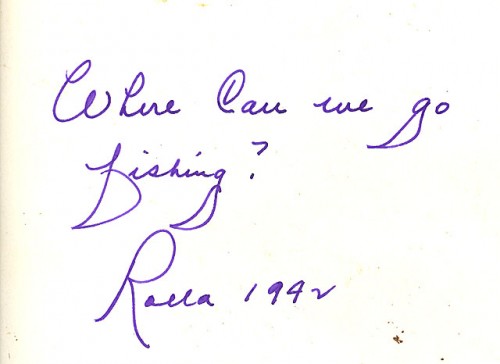 Where Can we go
fishing?
Rolla 1942